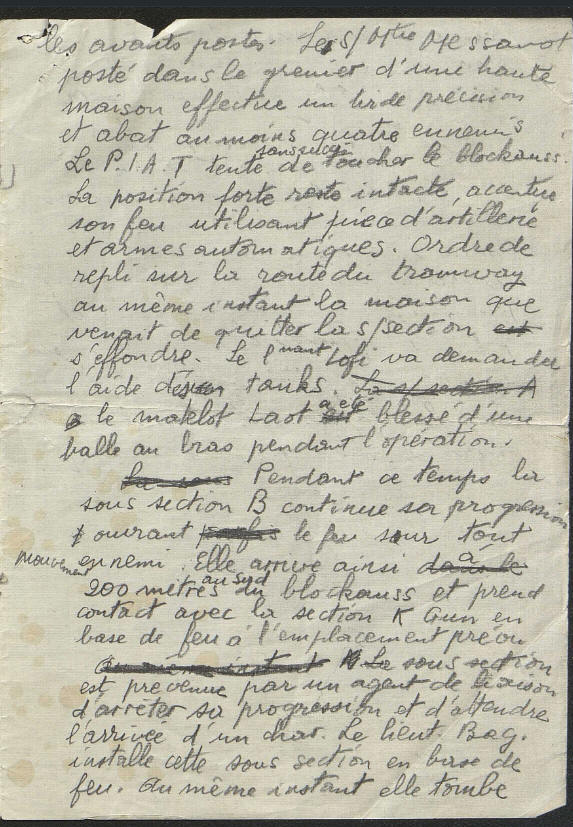 les avants postes. Le S/Mtre Messanot
posté dans le grenier d'une haute
maison effectue un tir de précision
et abat au moins quatre ennemis
Le P.I.A.T tente sans succès de toucher le blockauss.
La position forte reste intacte, accentue
son feu utilisant pièce d'artillerie
et armes automatiques. Ordre de
repli sur la route du tramway
au même instant la maison que
venait de quitter la s/section est
s'effondre. Le lnant Lofi va demander
l'aide des tanks. La s/section A
le matelot Laot a été blessé d'une
balle au bras pendant l'opération.
La sous Pendant ce temps la
sous section B continue sa progression
ouvrant le feu sur tout
mouvement ennemi. Elle arrive ainsi à
200 mètres au sud du blockauss et prend
contact avec la section K Gun en
base de feu à l'emplacement prévu
Au même instant La sous section
est prévenue par un agent de liaison
d'arrêter sa progression et d'attendre
l'arrivée d'un char. Le lieut. Bag.
installe cette sous section en base de
feu. Au même instant elle tombe